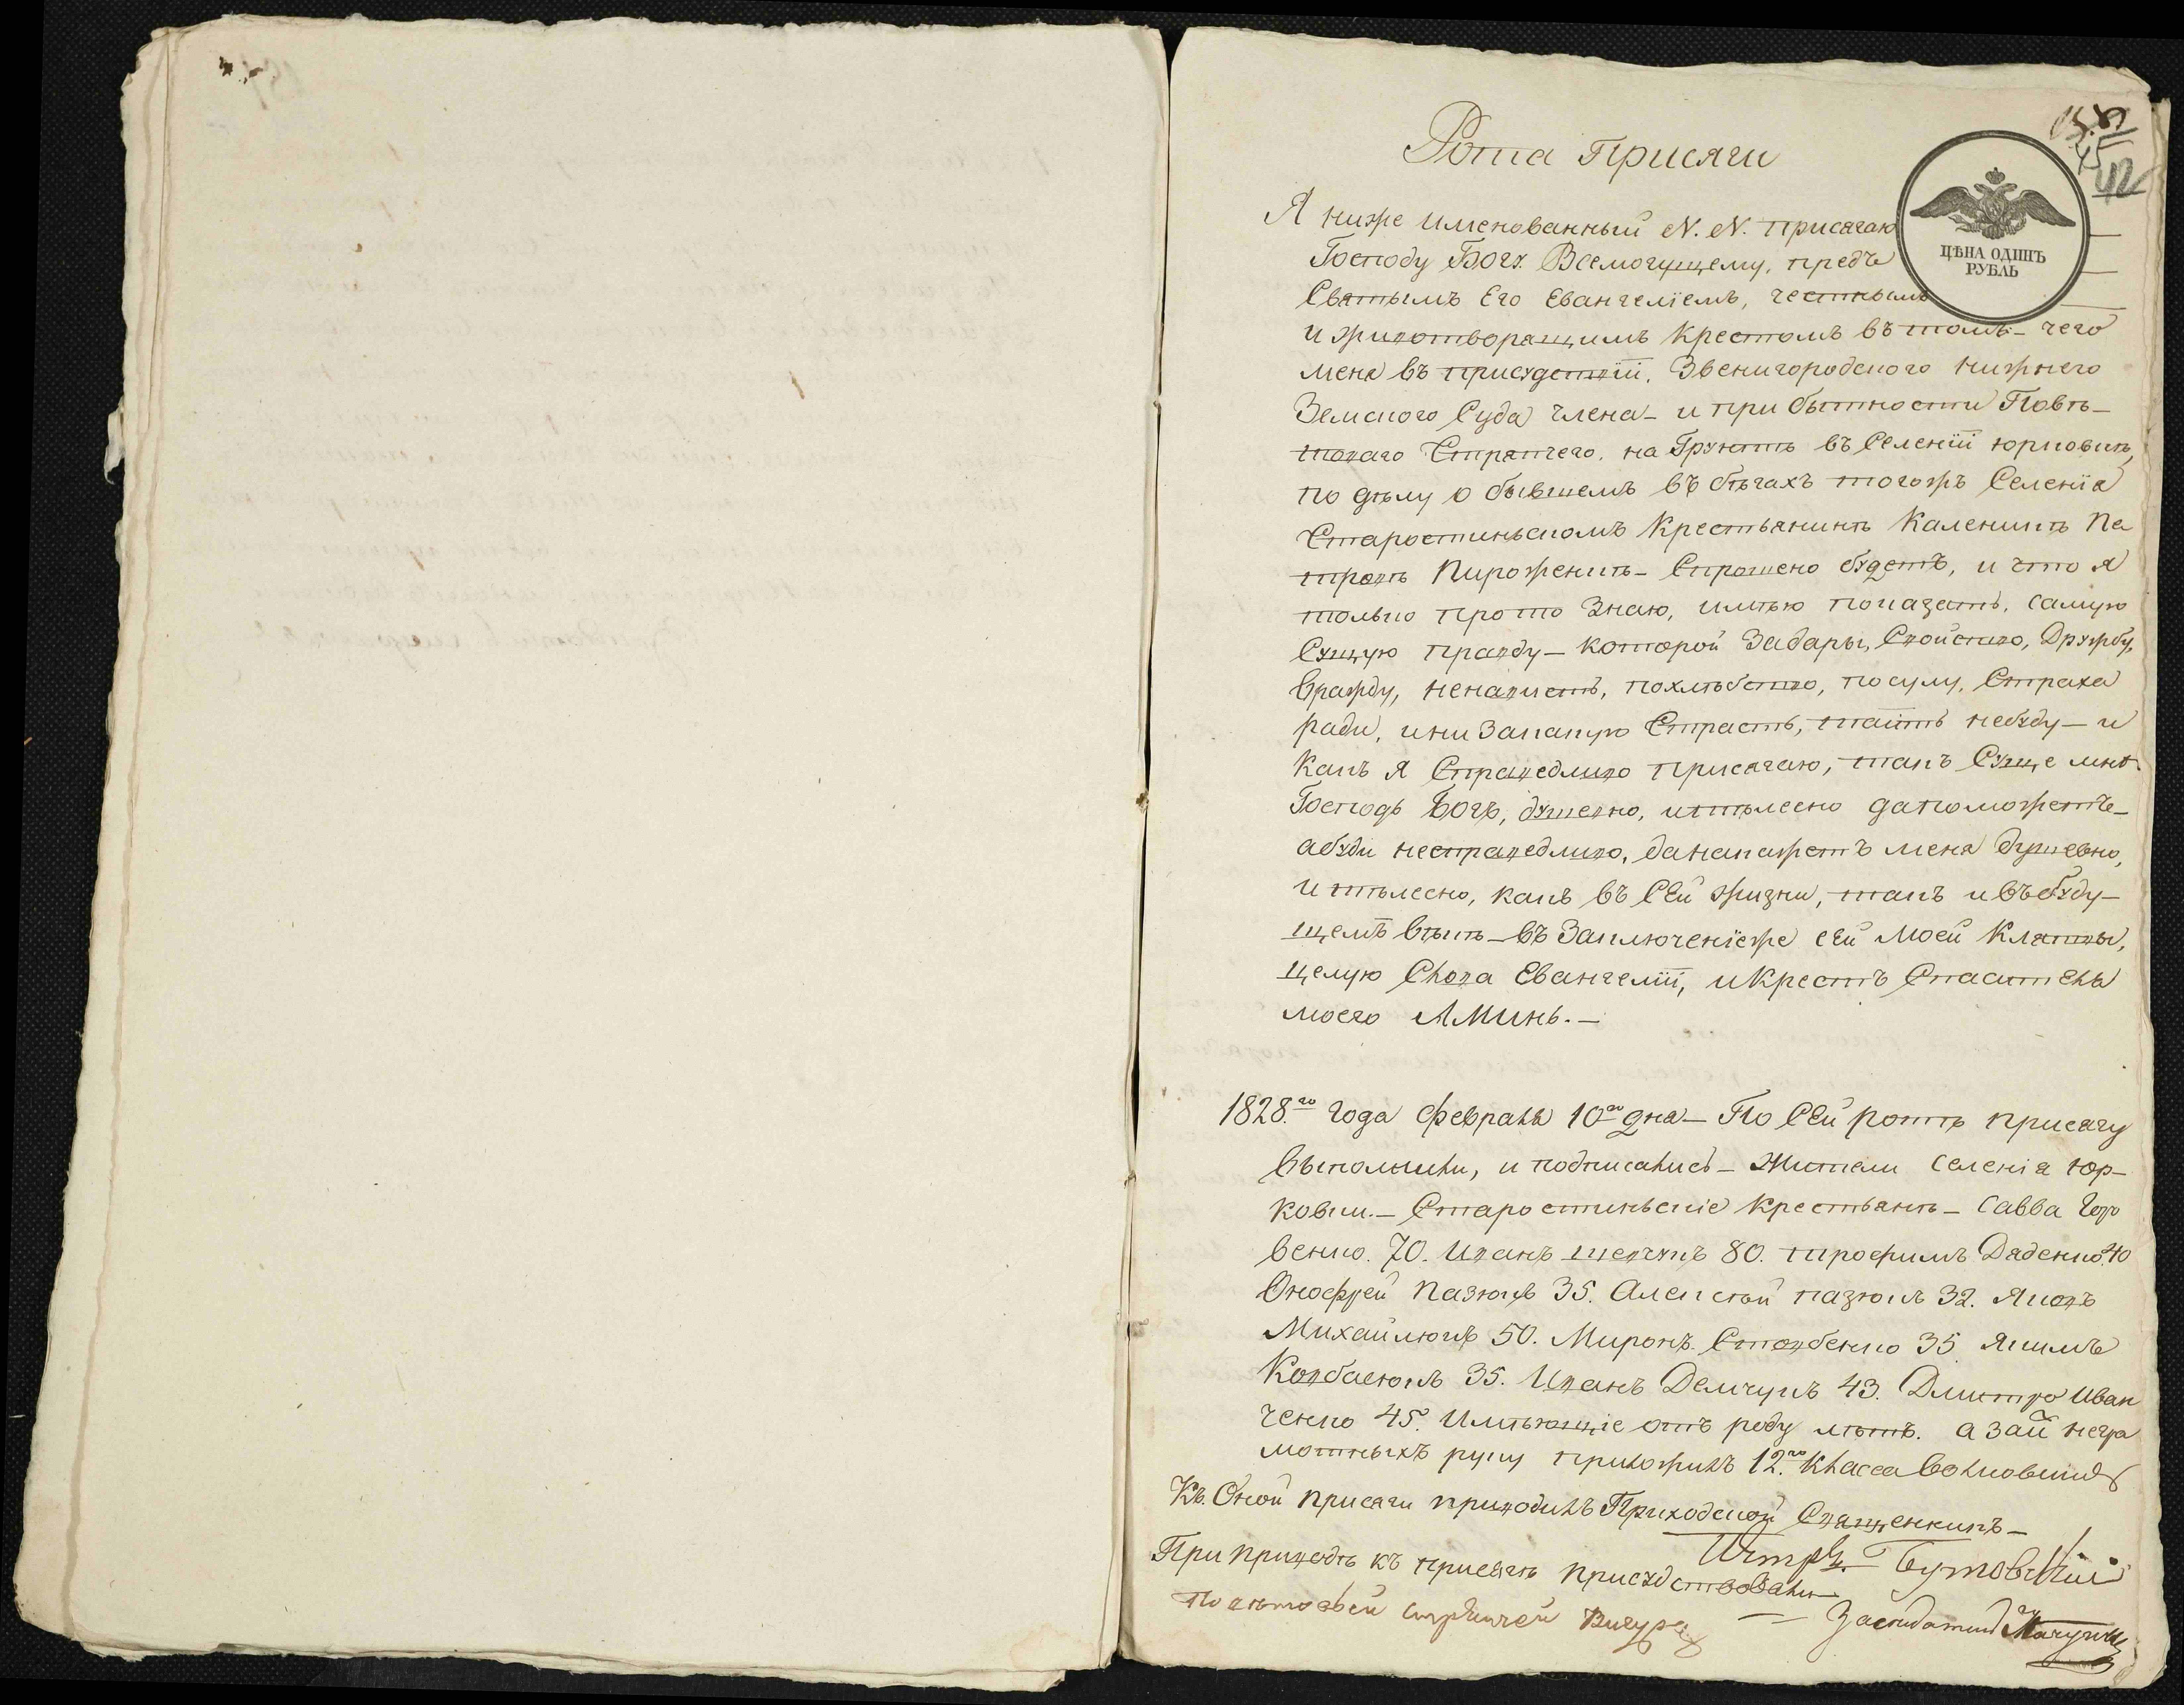 Рота Присяги
ЦѢНА ОДИНЪ
РУБЛЬ
42
Я ниже именованный N. N. присягаю
Господу Богу Всемогущему, предъ
Святымъ Его Евангелїемъ, честнымъ
и животворящимъ Крестомъ въ томъ – чего
меня въ присудствїи, Звенигородского нижнего
Земского Суда члена – и при бытности Повѣ–
товаго Стряпчего, на Грунтѣ въ Селенїи Юрковкѣ,
по дѣлу о бывшемъ въ бѣгахъ тогожъ Селенїя
Старостинскомъ Крестьянинѣ Каленикѣ Пе
тровѣ – Спрошено будетъ, и что я
только про то Знаю, имѣю показать, самую
Сущую правду – которой Задары, Свойство, Дружбу,
вражду, ненависть, похлѣбство, посулу, Страха
ради, ини Закакую Страсть, таить небуду – и
Какъ я Справедливо присягаю, такъ Суще мнѣ
Господь Богъ, душевно, итѣлесно даποможетъ –
абуди несправедливо, данакажетъ меня душевно,
и тѣлесно, какъ въ Сей жизни, такъ и въ буду–
щемъ вѣкѣ – въ Заключенїеже сей моей Клятвы,
целую Слова Евангелїи, и Крестъ Спасителя
моего Аминь. –
1828.го года февраля 10го дня – По Сей ротѣ присягу
выполнили, и подписались – Жители селенїя Юр–
ковки. – Старостинскїе крестьянѣ – Савва
венко. 70. Иванъ Шевчукъ 80. Трофимъ Даденко 40
Онофрей Пазюкъ 35. Алексѣй пазюкъ 32. Яковъ
Михайлюкъ 50. Миронъ Стовбенко 35 Якимъ
Ковбасюкъ 35. Иванъ Демчукъ 43. Дмитро Иван
ченко 45. Имѣющїе отъ роду лѣтъ. а за их негра
мотныхъ руку приложилъ 12.го Класса Волковинскїй
Къ Оной присяги приводилъ Приходской Священникъ –
Петръ Бутовскїй
При приводѣ къ присягѣ присудствовали
Поветовой Стряпчей Вигура
Заседатель